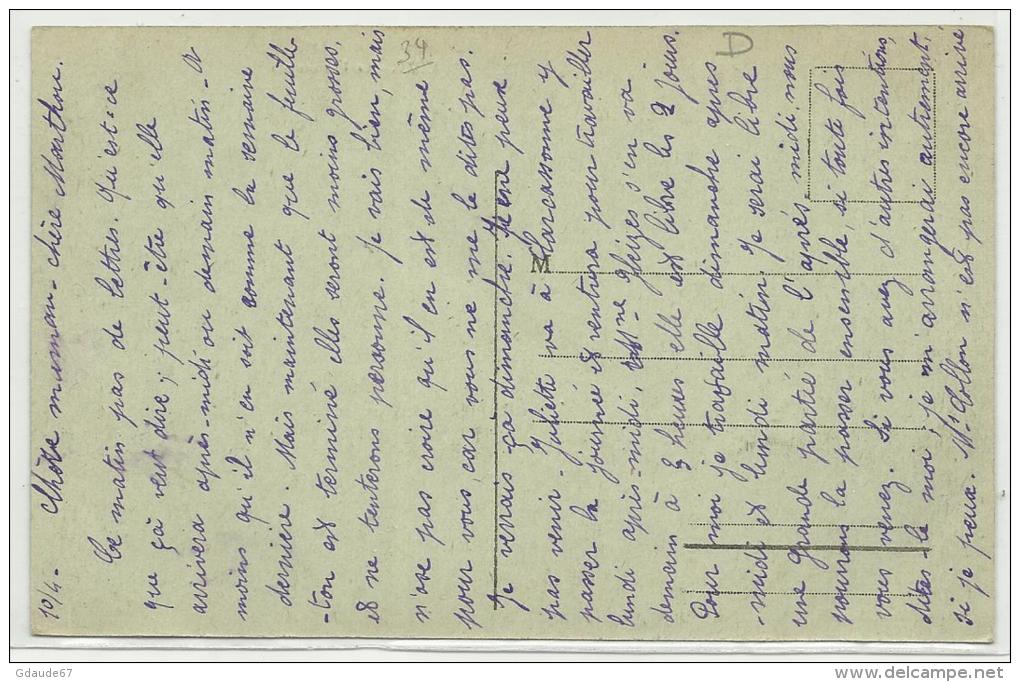 10/4 - Chère maman - chère Marthon.
Ce matin pas de lettres. Qu'est-ce
que çà veut dire, peut-être qu'elle
arrivera après-midi ou demain matin - A
moins qu'il n'en soit comme la semaine
dernière. Mais maintenant que le feuille-
-ton est terminé elles seront moins grosses,
et ne tenterons personne. Je vais bien, mais
n'ose pas croire qu'il en est de même
pour vous, car vous ne me le dites pas.
Je venais ça dimanche. Je ne peux
pas venir - Juliette va à Carcassonne y
passer la journée et rentrera pour travailler
lundi après-midi, Mme Gleizes s'en va
demain à 3 heures elle est libre les 2 jours.
Pour moi je travaille dimanche après
-midi et lundi matin. Je serai libre
une grande partie de l'après-midi nous
pourrons la passer ensemble, si toute fois
vous venez. Si vous avez d'autres intentions,
dites le moi, je m'arrangerai autrement,
si je peux. Mr Collon n'est pas encore arrivé
34
M
Gdaude67
www.delcampe.net